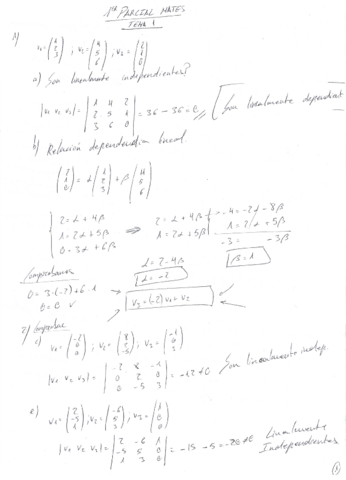 1er PARCIAL MATES
TEMA 1
1)
v₁=(1 2 3) ; v₂=(4 5 6) ; v₃=(2 1 0)
a) Son linealmente independientes?
|v₁ v₂ v₃| = |1 4 2; 2 5 1; 3 6 0| = 36 - 36 = 0 // Son linealmente dependient
b) Relación dependencia lineal
(2 1 0) = α(1 2 3) + β(4 5 6)
2=α+4β
1=2α+5β
0=3α+6β
⇒
2=α+4β
1=2α+5β
-4=-2α-8β
1=2α+5β
-3= -3β
α=2-4β
β=1
α=-2
Comprobamos
0=3·(-2)+6·1
0=0 ✓
v₃=(-2)v₁+v₂
2) Comprobar
c) v₁=(-2 0 0) ; v₂=(8 2 -5) ; v₃=(-1 0 3)
|v₁ v₂ v₃| = |-2 8 -1; 0 2 0; 0 -5 3| = -12≠0 Son linealmente indep.
e) v₁=(2 -5 1) ; v₂=(-6 5 3) ; v₃=(1 0 0)
|v₁ v₂ v₃| = |2 -6 1; -5 5 0; 1 3 0| = -15-5=-20≠0 Linealmente
Independientes